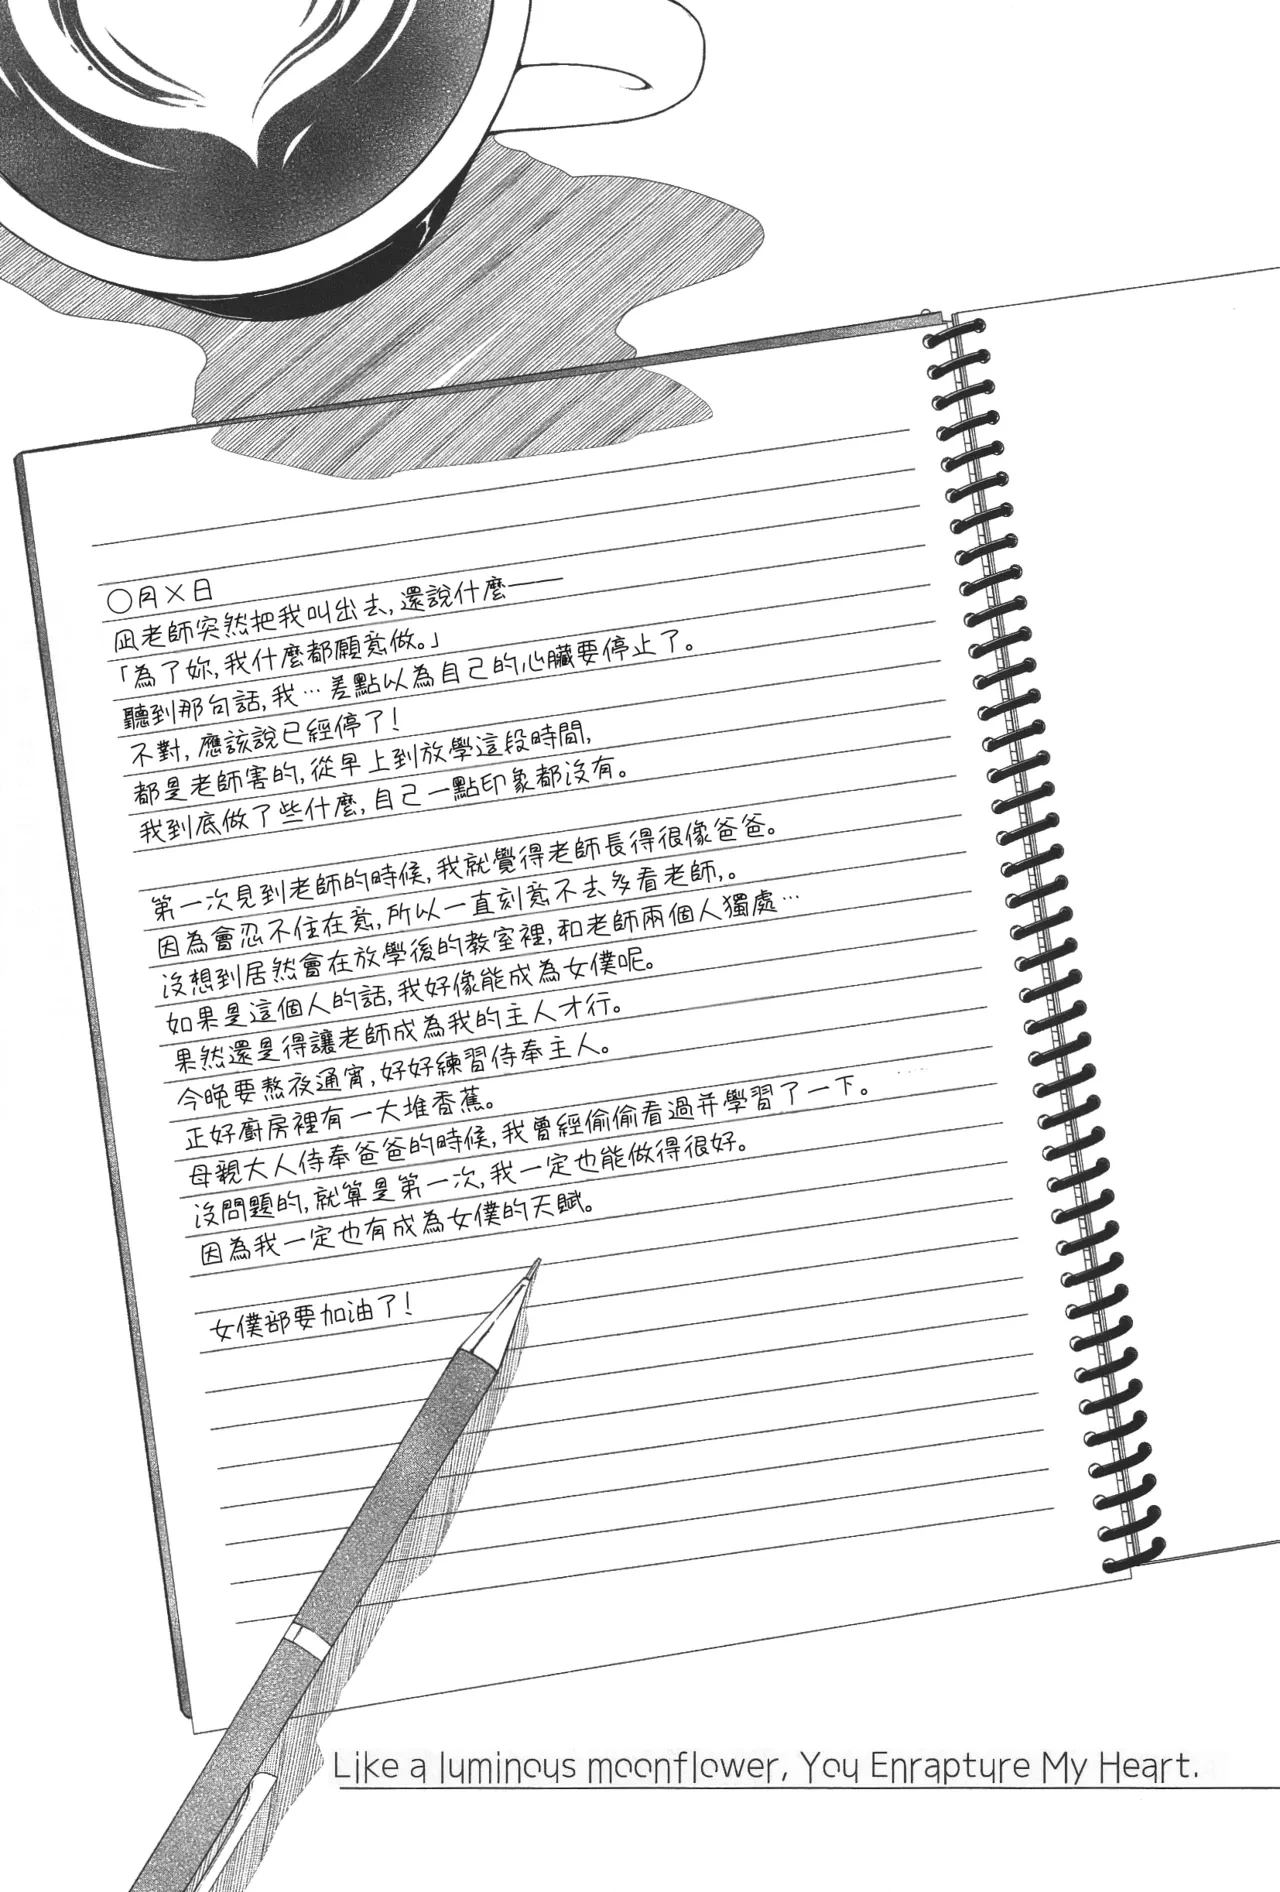 ○月×日
凪老師突然把我叫出去,還說什麼——
「為了妳,我什麼都願意做。」
聽到那句話,我…差點以為自己的心臟要停止了。
不對,應該說已經停了!
都是老師害的,從早上到放學這段時間,
我到底做了些什麼,自己一點印象都沒有。
第一次見到老師的時候,我就覺得老師長得很像爸爸。
因為會忍不住在意,所以一直刻意不去多看老師,。
沒想到居然會在放學後的教室裡,和老師兩個人獨處…
如果是這個人的話,我好像能成為女僕呢。
果然還是得讓老師成為我的主人才行。
今晚要熬夜通宵,好好練習侍奉主人。
正好廚房裡有一大堆香蕉。
母親大人侍奉爸爸的時候,我曾經偷偷看過并學習了一下。
沒問題的,就算是第一次,我一定也能做得很好。
因為我一定也有成為女僕的天賦。
女僕部要加油了!
Like a luminous moonflower, You Enrapture My Heart.